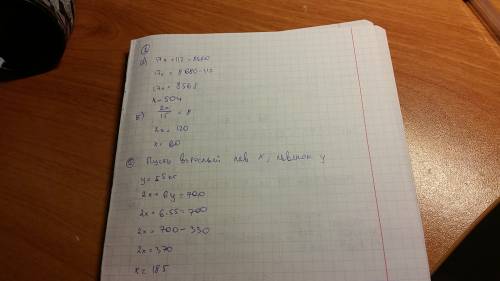 ①
а) 17x + 112 = 8680
17x = 8680 - 112
17x = 8568
x = 504
б) 2x/15 = 8
2x = 120
x = 60
② Пусть взрослый лев x, львенок y
y = 55 кг
2x = 6y = 700
2x = 6·55 = 700
2x = 700 - 330
2x = 370
x = 185